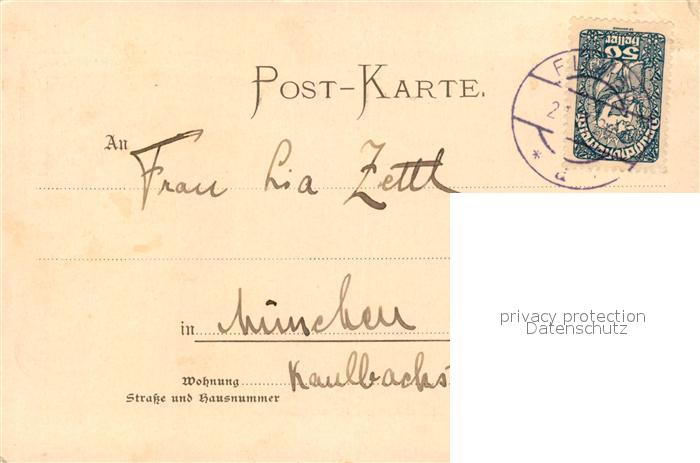 50
Heller
POST-KARTE.
An Frau Lia Zettl
in München
Wohnung Kaulbachs
Straße und Hausnummer
privacy protection
Datenschutz